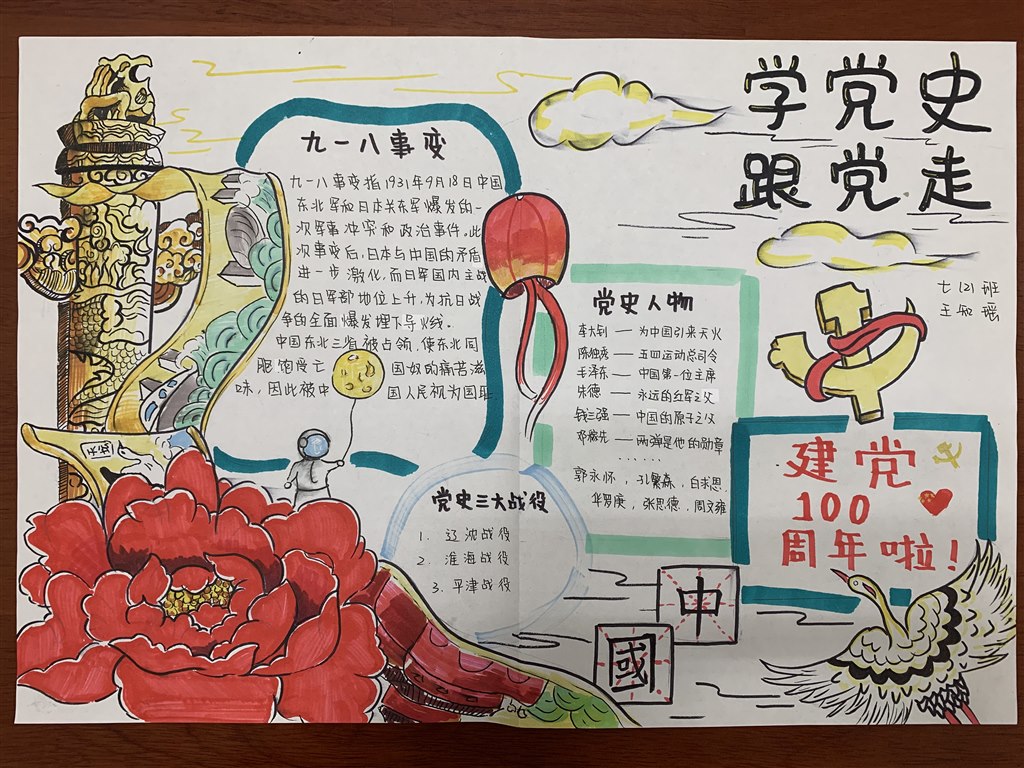 学党史
跟党走
七(2)班
王知瑶
九一八事变
九一八事变指1931年9月18日中国
东北军和日本关东军爆发的一
次军事冲突和政治事件。此
次事变后,日本与中国的矛盾
进一步激化,而日军国内主战
的日军部地位上升,为抗日战
争的全面爆发埋下导火线。
中国东北三省被占领,使东北同
胞饱受亡国奴的痛苦滋
味,因此被中国人民视为国耻
党史人物
李大钊——为中国引来天火
陈独秀——五四运动总司令
毛泽东——中国第一位主席
朱德——永远的红军之父
钱三强——中国的原子之父
邓稼先——两弹是他的勋章
······
郭永怀,孔繁森,白求恩,
华罗庚,张思德,周文雍
党史三大战役
1. 辽沈战役
2. 淮海战役
3. 平津战役
建党
100
周年啦!
中
國